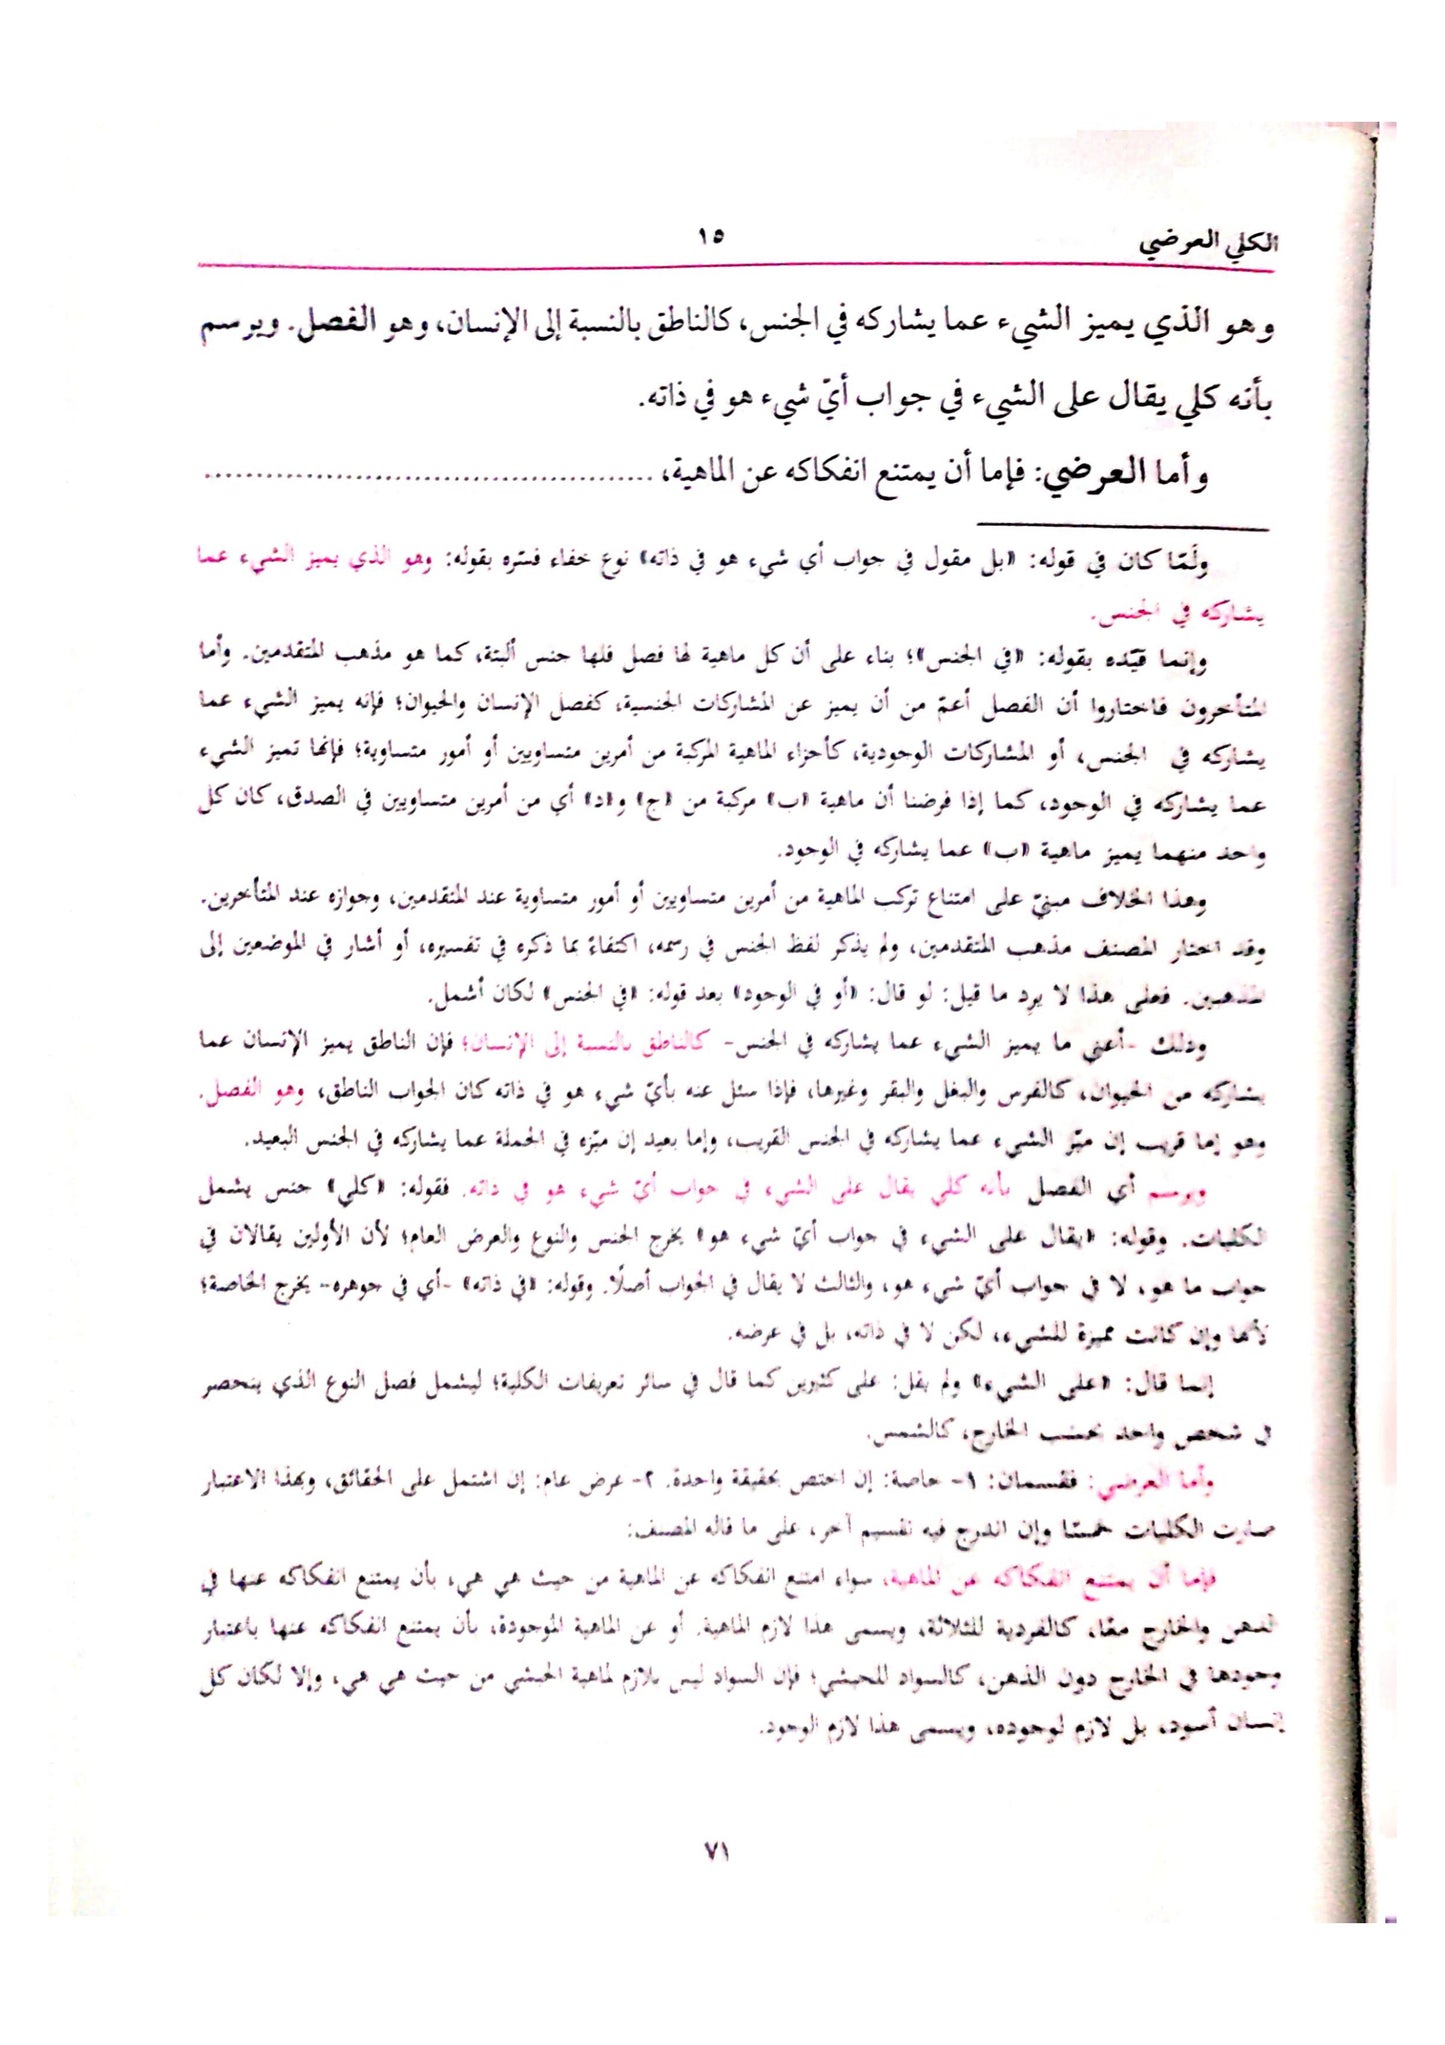 الكلي العرضي
١٥
وهو الذي يميز الشيء عما يشاركه في الجنس، كالناطق بالنسبة إلى الإنسان، وهو الفصل. ويرسم
بأنه كلي يقال على الشيء في جواب أيّ شيء هو في ذاته.
وأما العرضي: فإما أن يمتنع انفكاكه عن الماهية، ............................................
ولَمّا كان في قوله: «بل مقول في جواب أي شيء هو في ذاته» نوع خفاء فسّره بقوله: وهو الذي يميز الشيء عما
يشاركه في الجنس.
وإنما قيّده بقوله: «في الجنس»؛ بناء على أن كل ماهية لها فصل فلها جنس ألبتة، كما هو مذهب المتقدمين. وأما
المتأخرون فاختاروا أن الفصل أعمّ من أن يميز عن المشاركات الجنسية، كفصل الإنسان والحيوان؛ فإنه يميز الشيء عما
يشاركه في الجنس، أو المشاركات الوجودية، كأجزاء الماهية المركبة من أمرين متساويين أو أمور متساوية؛ فإنها تميز الشيء
عما يشاركه في الوجود، كما إذا فرضنا أن ماهية «ب» مركبة من «ج» و«د» أي من أمرين متساويين في الصدق، كان كل
واحد منهما يميز ماهية «ب» عما يشاركه في الوجود.
وهذا الخلاف مبنيّ على امتناع تركب الماهية من أمرين متساويين أو أمور متساوية عند المتقدمين، وجوازه عند المتأخرين.
وقد اختار المصنف مذهب المتقدمين، ولم يذكر لفظ الجنس في رسمه، اكتفاءً بما ذكره في تفسيره، أو أشار في الموضعين إلى
المذهبين. فعلى هذا لا يرِد ما قيل: لو قال: «أو في الوجود» بعد قوله: «في الجنس» لكان أشمل.
وذلك -أعني ما يميز الشيء عما يشاركه في الجنس- كالناطق بالنسبة إلى الإنسان؛ فإن الناطق يميز الإنسان عما
يشاركه من الحيوان، كالفرس والبغل والبقر وغيرها، فإذا سئل عنه بأيّ شيء هو في ذاته كان الجواب الناطق، وهو الفصل.
وهو إما قريب إن ميّز الشيء عما يشاركه في الجنس القريب، وإما بعيد إن ميّزه في الجملة عما يشاركه في الجنس البعيد.
ويرسم أي الفصل بأنه كلي يقال على الشيء في جواب أيّ شيء هو في ذاته. فقوله: «كلي» جنس يشمل
الكليات. وقوله: «يقال على الشيء في جواب أيّ شيء هو» يخرج الجنس والنوع والعرض العام؛ لأن الأولين يقالان في
جواب ما هو، لا في جواب أيّ شيء هو، والثالث لا يقال في الجواب أصلًا. وقوله: «في ذاته» -أي في جوهره- يخرج الخاصة؛
لأنها وإن كانت مميزة للشيء، لكن لا في ذاته، بل في عرضه.
إنما قال: «على الشيء» ولم يقل: على كثيرين كما قال في سائر تعريفات الكلية؛ ليشمل فصل النوع الذي ينحصر
في شخص واحد بحسب الخارج، كالشمس.
وأما العرضي: فقسمان: ١- خاصة: إن اختص بحقيقة واحدة. ٢- عرض عام: إن اشتمل على الحقائق، وبهذا الاعتبار
صارت الكليات خمسًا وإن اندرج فيه تقسيم آخر، على ما قاله المصنف:
فإما أن يمتنع انفكاكه عن الماهية، سواء امتنع انفكاكه عن الماهية من حيث هي هي، بأن يمتنع انفكاكه عنها في
الذهن والخارج معًا، كالفردية للثلاثة، ويسمى هذا لازم الماهية. أو عن الماهية الموجودة، بأن يمتنع انفكاكه عنها باعتبار
وجودها في الخارج دون الذهن، كالسواد للحبشي؛ فإن السواد ليس بلازم لماهية الحبشي من حيث هي هي، وإلا لكان كل
إنسان أسود، بل لازم لوجوده، ويسمى هذا لازم الوجود.
٧١